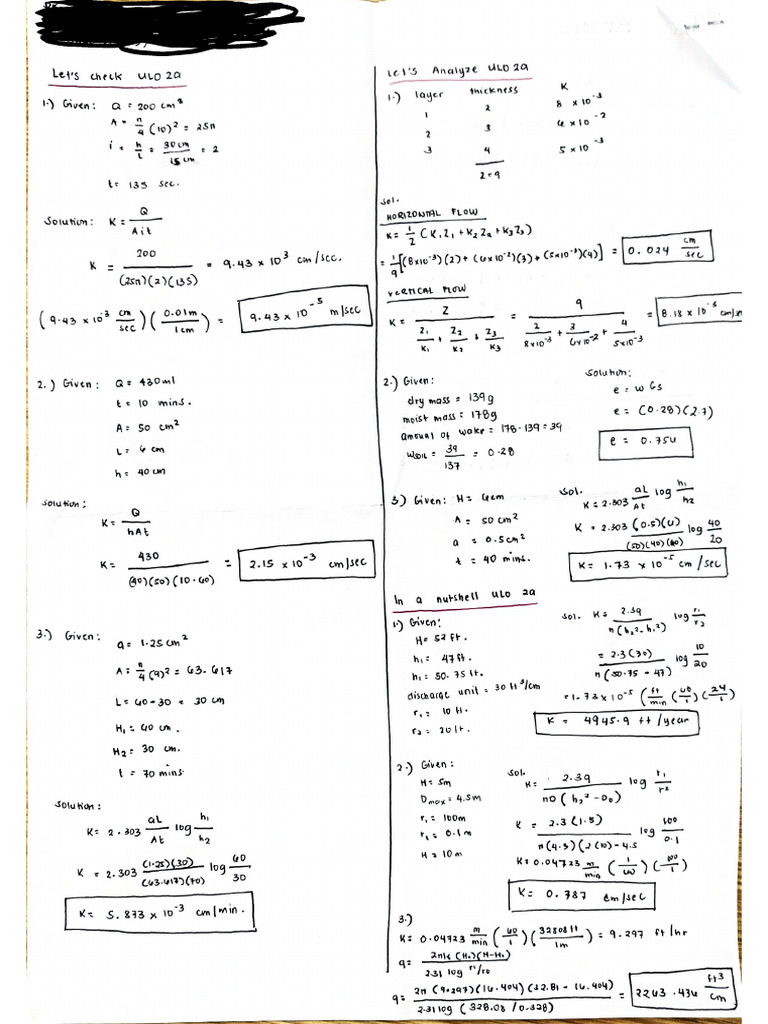 Let's check ULO 2a
1.) Given: Q = 200 cm³
A = π/4 (10)² = 25π
i = h/L = 30cm/15cm = 2
t = 135 sec.
Solution: K = Q / Ait
K = 200 / (25π)(2)(135) = 9.43 x 10³ cm/sec.
(9.43 x 10⁻³ cm/sec)(0.01m/1cm) = 9.43 x 10⁻⁵ m/sec
2.) Given: Q = 430ml
t = 10 mins.
A = 50 cm²
L = 6 cm
h = 40cm
Solution:
K = Q / hAt
K = 430 / (40)(50)(10·60) = 2.15 x 10⁻³ cm/sec
3.) Given: a = 1.25 cm²
A = π/4 (9)² = 63.617
L = 60-30 = 30 cm
H₁ = 60 cm.
H₂ = 30 cm.
t = 70 mins.
Solution:
K = 2.303 aL/At log h₁/h₂
K = 2.303 (1.25)(30)/(63.617)(70) log 60/30
K = 5.873 x 10⁻³ cm/min.
Let's Analyze ULO 2a
1.) layer thickness K
1 2 8 x 10⁻³
2 3 6 x 10⁻²
3 4 5 x 10⁻³
Z = 9
Sol.
HORIZONTAL FLOW
K = 1/Z (K₁Z₁ + K₂Z₂ + K₃Z₃)
= 1/9 [(8x10⁻³)(2) + (6x10⁻²)(3) + (5x10⁻³)(4)] = 0.024 cm/sec
VERTICAL FLOW
K = Z / Z₁/K₁ + Z₂/K₂ + Z₃/K₃ = 9 / 2/8x10⁻³ + 3/6x10⁻² + 4/5x10⁻³ = 8.18 x 10⁻³ cm/
2.) Given:
dry mass = 139g
moist mass = 178g
amount of water = 178-139 = 39
= 39/137 = 0.28
Solution:
e = w Gs
e = (0.28)(2.7)
e = 0.756
3) Given: H = 6cm
A = 50 cm²
a = 0.5cm²
t = 40 mins.
Sol.
K = 2.303 aL/At log h₁/h₂
K = 2.303 (0.5)(6)/(50)(40)(60) log 40/20
K = 1.73 x 10⁻⁵ cm/sec
In a nutshell ULO 2a
1.) Given:
H = 52 ft.
h₁ = 47 ft.
h₁ = 50.75 ft.
discharge unit = 30 ft³/cm
r₁ = 10 ft.
r₂ = 20 ft.
Sol. K = 2.3q / π(h₂² - h₁²) log r₁/r₂
= 2.3(30) / π(50.75 - 47) log 10/20
= 1.73 x 10⁻⁵ (ft/min)(60/1)(24/1)
K = 4945.9 ft/year
2.) Given:
H = 5m
Dmax = 4.5m
r₁ = 100m
r₁ = 0.1m
H = 10m
Sol.
K = 2.3q / πD (h₂² - D₀) log r₁/r²
K = 2.3(1.5) / π(4.5)(2(10) - 4.5 log 100/0.1
K = 0.04723 m/min (1/60)(100/1)
K = 0.787 cm/sec
3.)
K = 0.04723 m/min (60/1)(3.2808ft/1m) = 9.297 ft/hr
q = 2πK(H₀)(H-H₀) / 2.31 log r₁/r₀
q = 2π (9.297)(16.404)(32.81 - 16.404) / 2.31 log (328.08 / 0.328) = 2263.436 ft³/cm